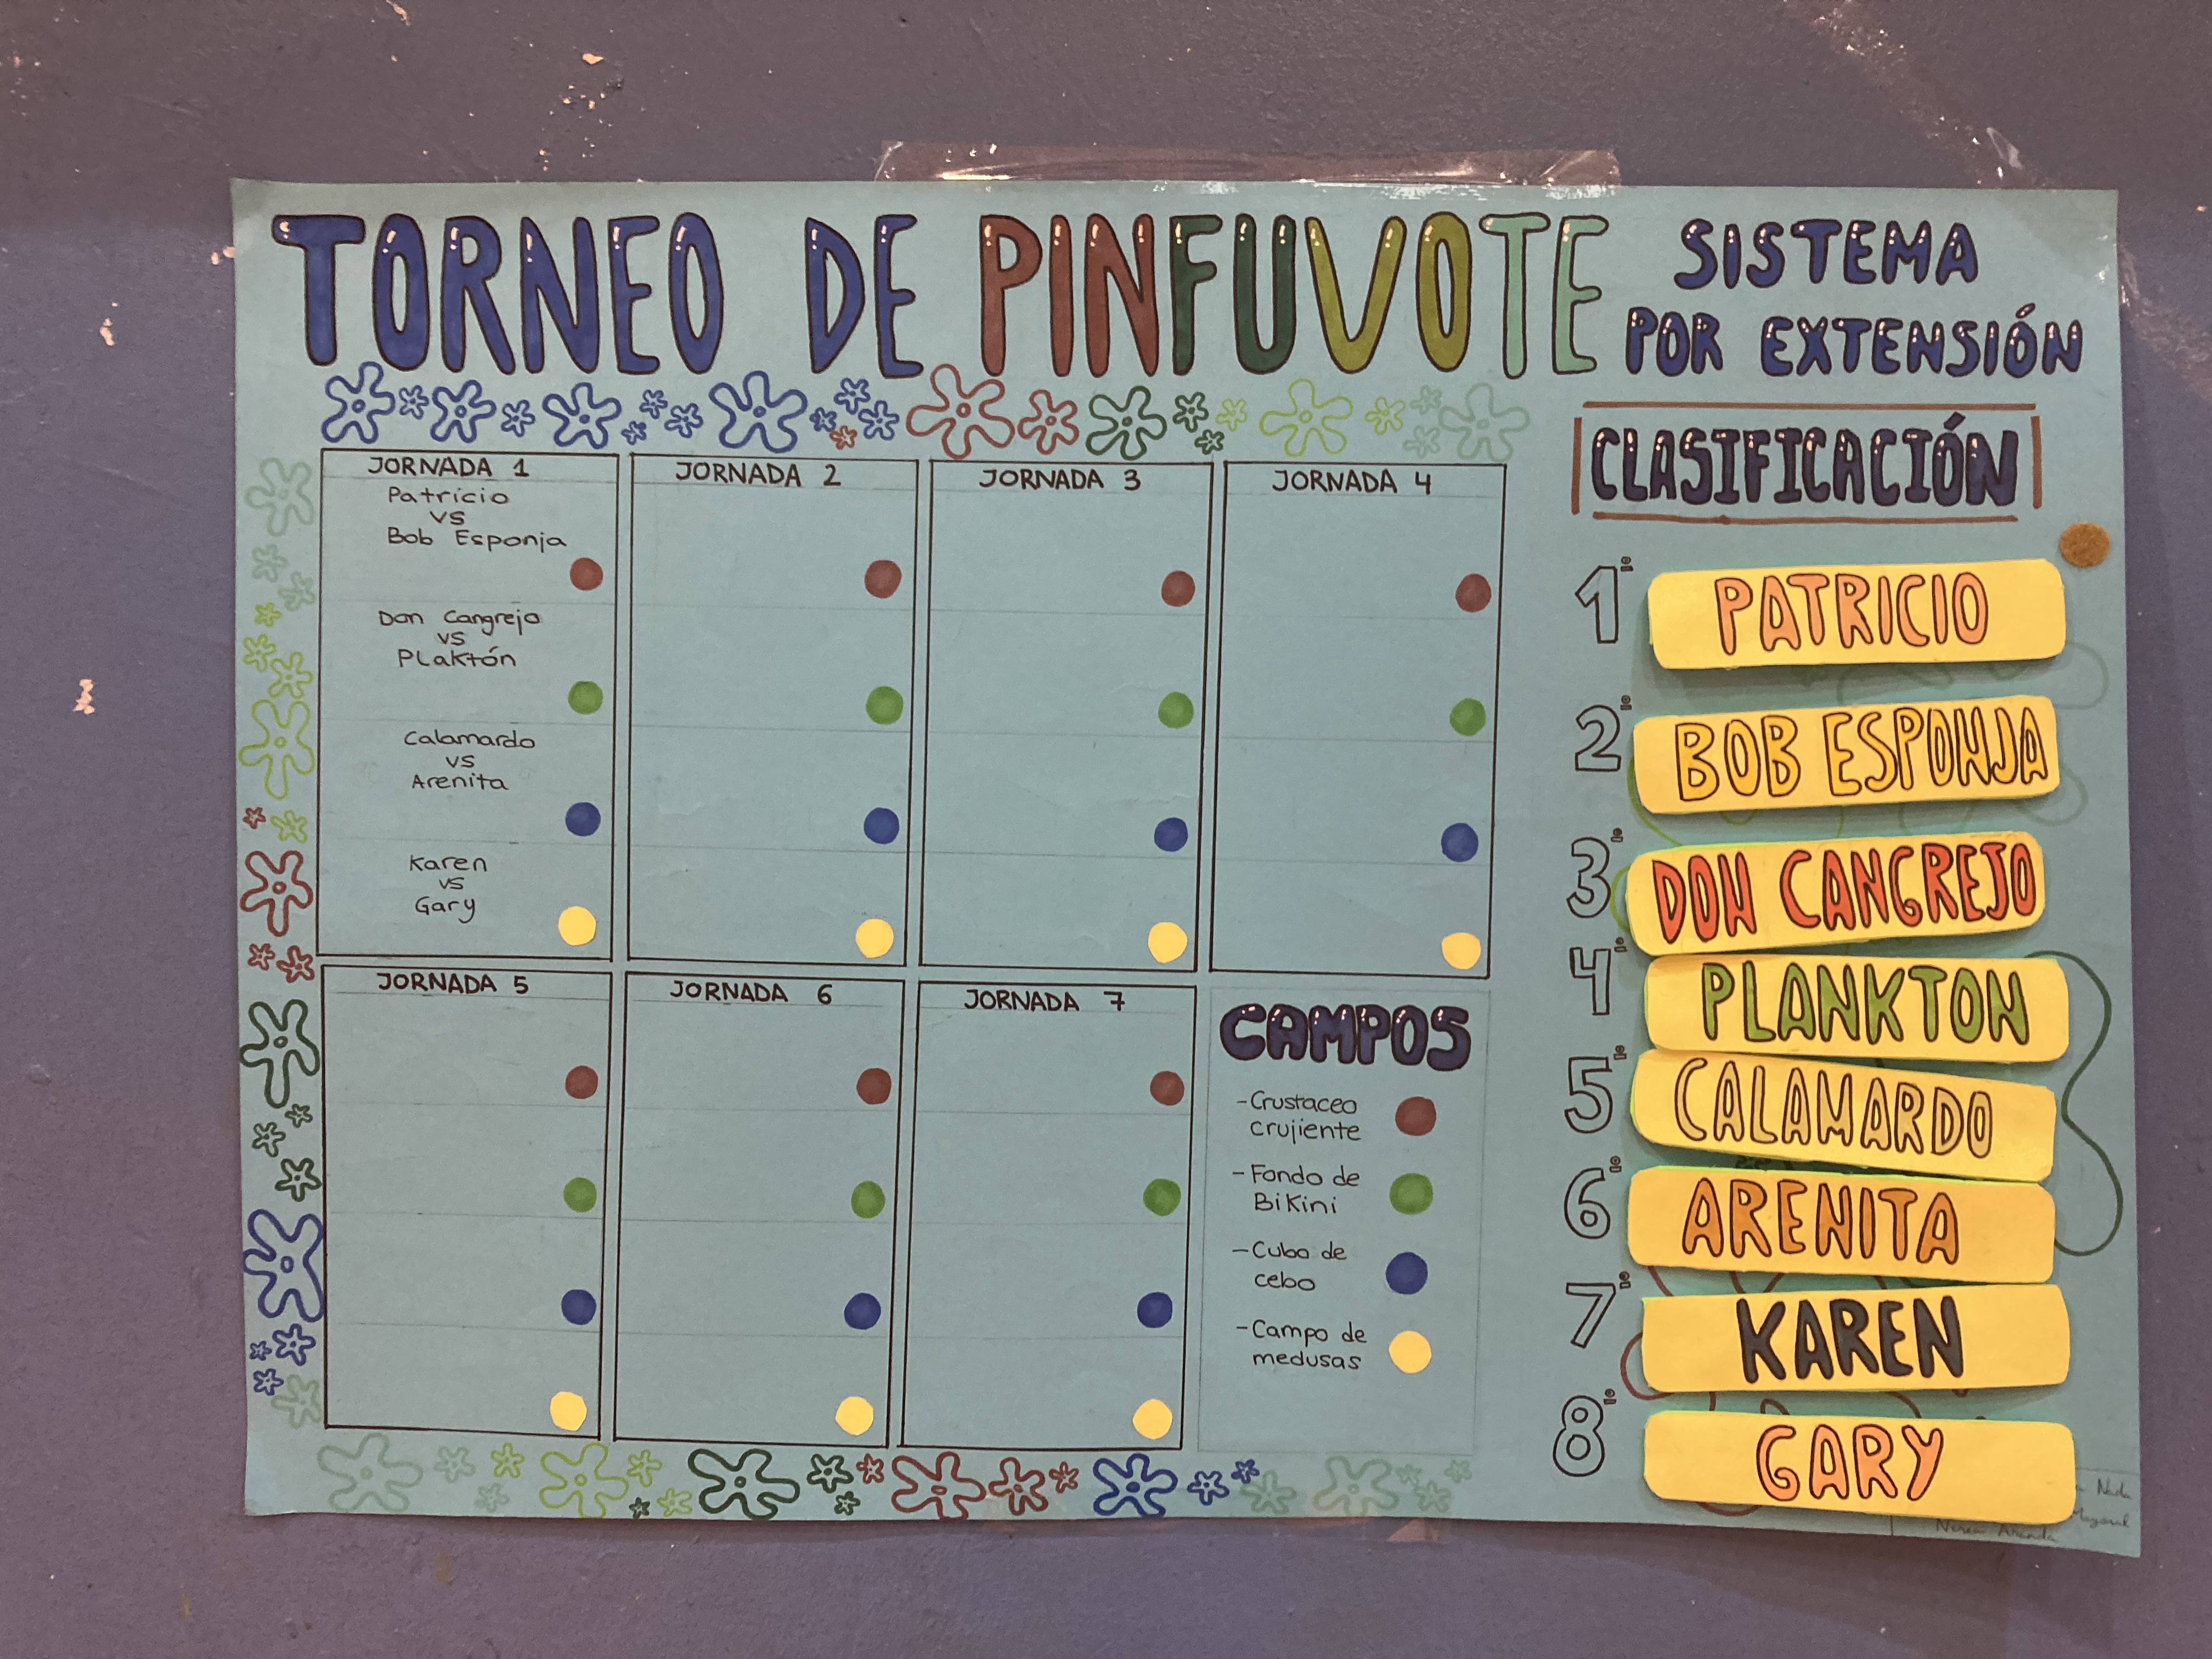 TORNEO DE PINFUVOTE
SISTEMA
POR EXTENSIÓN
JORNADA 1
Patricio
vs
Bob Esponja
Don Cangrejo
vs
Plaktón
Calamardo
vs
Arenita
Karen
vs
Gary
JORNADA 2
JORNADA 3
JORNADA 4
JORNADA 5
JORNADA 6
JORNADA 7
CAMPOS
-Crustaceo
crujiente
-Fondo de
Bikini
-Cubo de
cebo
-Campo de
medusas
CLASIFICACIÓN
1º PATRICIO
2º BOB ESPONJA
3º DON CANGREJO
4º PLANKTON
5º CALAMARDO
6º ARENITA
7º KAREN
8º GARY
Nada
Nerea Aranda